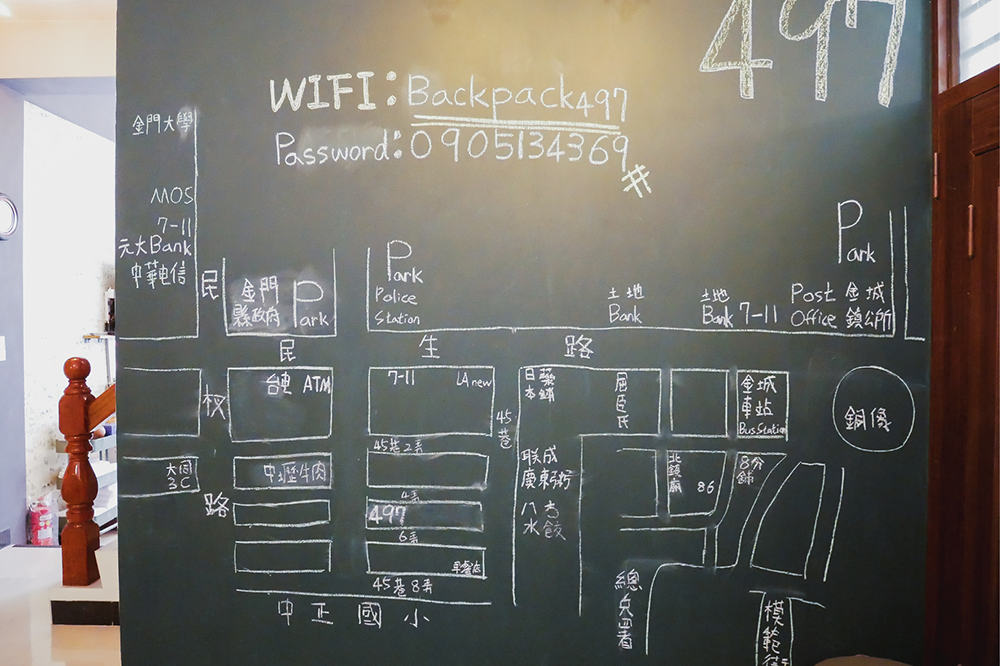 497
WIFI: Backpack497
Password: 0905134369
#
金門大學
MOS
7-11
元大Bank
中華电信
民
金門
縣政府
Park
Park
Police
Station
土地
Bank
土地
Bank
7-11
Park
Post
Office
金城
鎮公所
民生路
权
路
台電 ATM
7-11
LA new
45巷
日藥
本舖
屈臣氏
金城
車站
Bus Station
銅像
45巷2弄
大同
3C
中壢牛肉
4弄
497
6弄
早餐店
45巷8弄
中正國小
联成
廣東粥
八方
水餃
北鎮廟
86
8分舖
總兵署
模範街